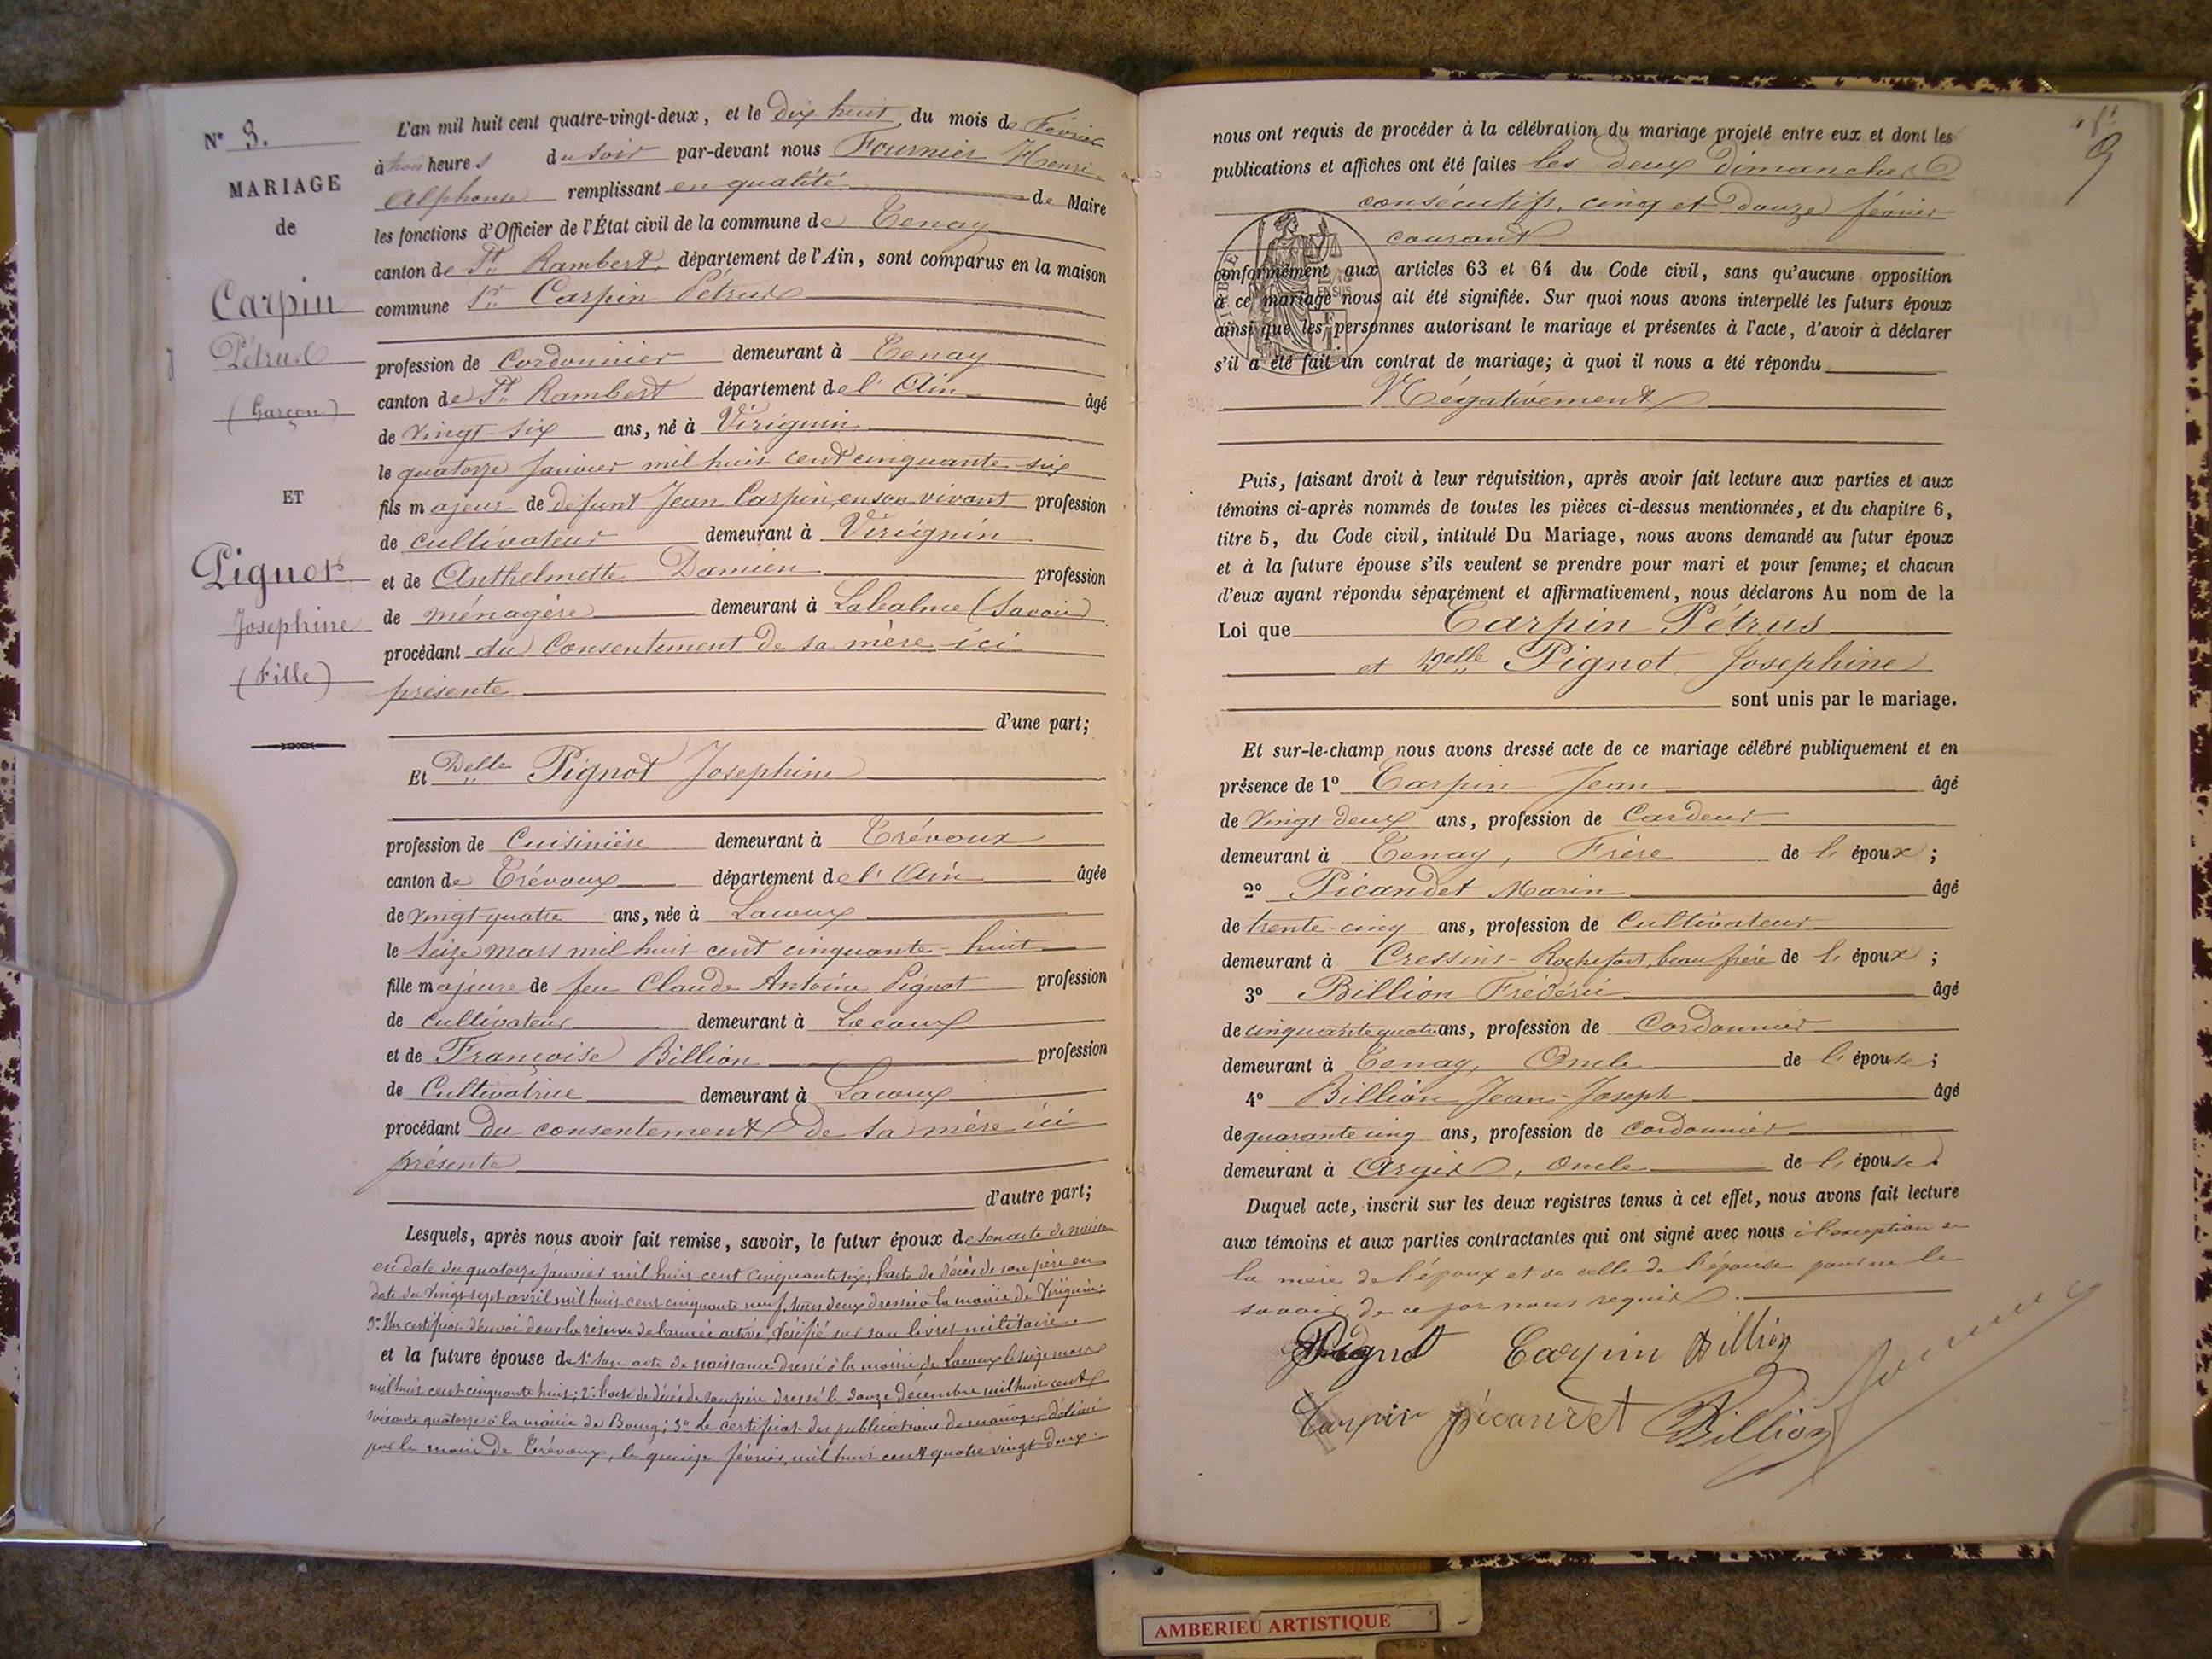 N° 3.
MARIAGE
de
Carpin
Pétrus
(Garçon)
ET
Pignot
Josephine
(Fille)
L'an mil huit cent quatre-vingt-deux, et le dix huit du mois de Février
à heures du soir par-devant nous Fournier Henri
Alphonse remplissant en qualité de Maire
les fonctions d'Officier de l'État civil de la commune de Tenay
canton de St Rambert, département de l'Ain, sont comparus en la maison
commune Sr Carpin Pétrus
profession de Cordonnier demeurant à Tenay
canton de St Rambert département de l'Ain âgé
de vingt-six ans, né à Virignin
le quatorze janvier mil huit cent cinquante six
fils majeur de défunt Jean Carpin, en son vivant profession
de cultivateur demeurant à Virignin
et de Anthelmette Damien profession
de ménagère demeurant à Labalme (Savoie)
procédant du Consentement de sa mère ici
présente
d'une part;
Et Delle Pignot Josephine
profession de Cuisinière demeurant à Trévoux
canton de Trévoux département de l'Ain âgée
de vingt-quatre ans, née à Lacoux
le seize mars mil huit cent cinquante-huit
fille majeure de feu Claude Antoine Pignot profession
de cultivateur demeurant à Lacoux
et de Françoise Billion profession
de Cultivatrice demeurant à Lacoux
procédant du consentement de sa mère ici
présente
d'autre part;
Lesquels, après nous avoir fait remise, savoir, le futur époux de son acte de naissance
en date du quatorze janvier mil huit cent cinquante six; l'acte de décès de son père en
date du vingt-sept avril mil huit cent cinquante neuf, tous deux dressés à la mairie de Virignin
3° Un certificat d'envoi dans la réserve de l'armée active, vérifié sur son livret militaire.
et la future épouse de 1° son acte de naissance dressé à la mairie de Lacoux le seize mars
mil huit cent cinquante huit; 2° l'acte de décès de son père dressé le douze décembre mil huit cent
soixante quatorze à la mairie de Bourg; 3° Le certificat des publications de mariage délivré
par le maire de Trévoux, le quinze février mil huit cent quatre vingt deux.
9
nous ont requis de procéder à la célébration du mariage projeté entre eux et dont les
publications et affiches ont été faites les deux dimanches
consécutifs, cinq et douze février
courant
conformément aux articles 63 et 64 du Code civil, sans qu'aucune opposition
à ce mariage nous ait été signifiée. Sur quoi nous avons interpellé les futurs époux
ainsi que les personnes autorisant le mariage et présentes à l'acte, d'avoir à déclarer
s'il a été fait un contrat de mariage; à quoi il nous a été répondu
Négativement
Puis, faisant droit à leur réquisition, après avoir fait lecture aux parties et aux
témoins ci-après nommés de toutes les pièces ci-dessus mentionnées, et du chapitre 6,
titre 5, du Code civil, intitulé Du Mariage, nous avons demandé au futur époux
et à la future épouse s'ils veulent se prendre pour mari et pour femme; et chacun
d'eux ayant répondu séparément et affirmativement, nous déclarons Au nom de la
Loi que Carpin Pétrus
et Delle Pignot Josephine
sont unis par le mariage.
Et sur-le-champ nous avons dressé acte de ce mariage célébré publiquement et en
présence de 1° Carpin Jean âgé
de vingt-deux ans, profession de Cardeur
demeurant à Tenay, Frère de l'époux;
2° Picandet Marin âgé
de trente-cinq ans, profession de Cultivateur
demeurant à Cressins-Rochefort, beau frère de l'époux;
3° Billion Frédéric âgé
de cinquante quatre ans, profession de Cordonnier
demeurant à Tenay, Oncle de l'épouse;
4° Billion Jean-Joseph âgé
de quarante cinq ans, profession de Cordonnier
demeurant à Argis, Oncle de l'épouse.
Duquel acte, inscrit sur les deux registres tenus à cet effet, nous avons fait lecture
aux témoins et aux parties contractantes qui ont signé avec nous à l'exception de
la mère de l'époux et de celle de l'épouse pour ne le
savoir, de ce par nous requis.
Pignot Carpin Billion
Carpin picandet Billion Fournier
AMBERIEU ARTISTIQUE